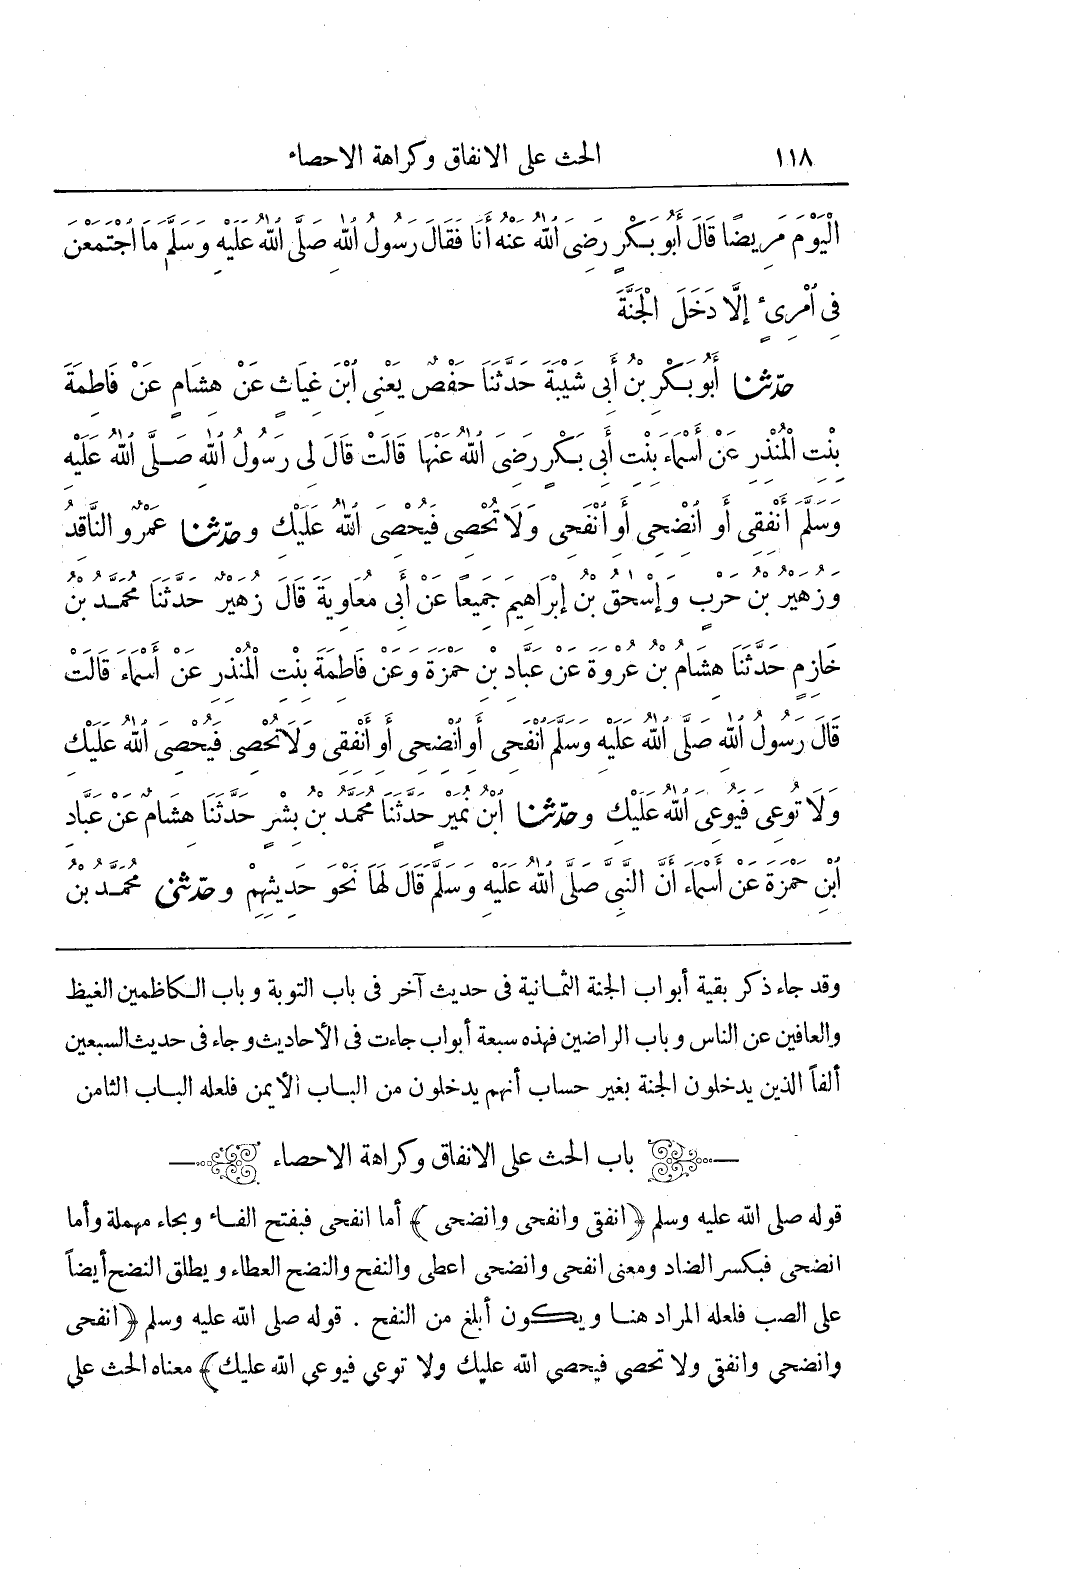 ١١٨ الحث على الانفاق وكراهة الاحصاء
الْيَوْمَ مَرِيضًا قَالَ أَبُو بَكْرٍ رَضِيَ اللهُ عَنْهُ أَنَا فَقَالَ رَسُولُ اللهِ صَلَّى اللهُ عَلَيْهِ وَسَلَّمَ مَا اجْتَمَعْنَ
فِي امْرِيءٍ إِلَّا دَخَلَ الْجَنَّةَ
حدّثنا أَبُو بَكْرِ بْنُ أَبِي شَيْبَةَ حَدَّثَنَا حَفْصٌ يَعْنِي ابْنَ غِيَاثٍ عَنْ هِشَامٍ عَنْ فَاطِمَةَ
بِنْتِ الْمُنْذِرِ عَنْ أَسْمَاءَ بِنْتِ أَبِي بَكْرٍ رَضِيَ اللهُ عَنْهَا قَالَتْ قَالَ لِي رَسُولُ اللهِ صَلَّى اللهُ عَلَيْهِ
وَسَلَّمَ أَنْفِقِي أَوِ انْضَحِي أَوِ انْفَحِي وَلَا تُحْصِي فَيُحْصِيَ اللهُ عَلَيْكِ و حدّثنا عَمْرٌو النَّاقِدُ
وَزُهَيْرُ بْنُ حَرْبٍ وَإِسْحٰقُ بْنُ إِبْرَاهِيمَ جَمِيعًا عَنْ أَبِي مُعَاوِيَةَ قَالَ زُهَيْرٌ حَدَّثَنَا مُحَمَّدُ بْنُ
خَازِمٍ حَدَّثَنَا هِشَامُ بْنُ عُرْوَةَ عَنْ عَبَّادِ بْنِ حَمْزَةَ وَعَنْ فَاطِمَةَ بِنْتِ الْمُنْذِرِ عَنْ أَسْمَاءَ قَالَتْ
قَالَ رَسُولُ اللهِ صَلَّى اللهُ عَلَيْهِ وَسَلَّمَ انْفَحِي أَوِ انْضَحِي أَوْ أَنْفِقِي وَلَا تُحْصِي فَيُحْصِيَ اللهُ عَلَيْكِ
وَلَا تُوعِي فَيُوعِيَ اللهُ عَلَيْكِ و حدّثنا ابْنُ نُمَيْرٍ حَدَّثَنَا مُحَمَّدُ بْنُ بِشْرٍ حَدَّثَنَا هِشَامٌ عَنْ عَبَّادِ
ابْنِ حَمْزَةَ عَنْ أَسْمَاءَ أَنَّ النَّبِيَّ صَلَّى اللهُ عَلَيْهِ وَسَلَّمَ قَالَ لَهَا نَحْوَ حَدِيثِهِمْ و حدّثني مُحَمَّدُ بْنُ
وقد جاء ذكر بقية أبواب الجنة الثمانية فى حديث آخر فى باب التوبة وباب الكاظمين الغيظ
والعافين عن الناس وباب الراضين فهذه سبعة أبواب جاءت فى الأحاديث وجاء فى حديث السبعين
ألفاً الذين يدخلون الجنة بغير حساب أنهم يدخلون من الباب الأيمن فلعله الباب الثامن
باب الحث على الانفاق وكراهة الاحصاء
قوله صلى الله عليه وسلم ﴿انفقى وانفحى وانضحى﴾ أما انفحى فبفتح الفاء وبحاء مهملة وأما
انضحى فبكسر الضاد ومعنى انفحى وانضحى اعطى والنفح والنضح العطاء ويطلق النضح أيضاً
على الصب فلعله المراد هنا ويكون أبلغ من النفح . قوله صلى الله عليه وسلم ﴿انفحى
وانضحي وانفقي ولا تحصي فيحصي الله عليك ولا توعي فيوعي الله عليك﴾ معناه الحث على